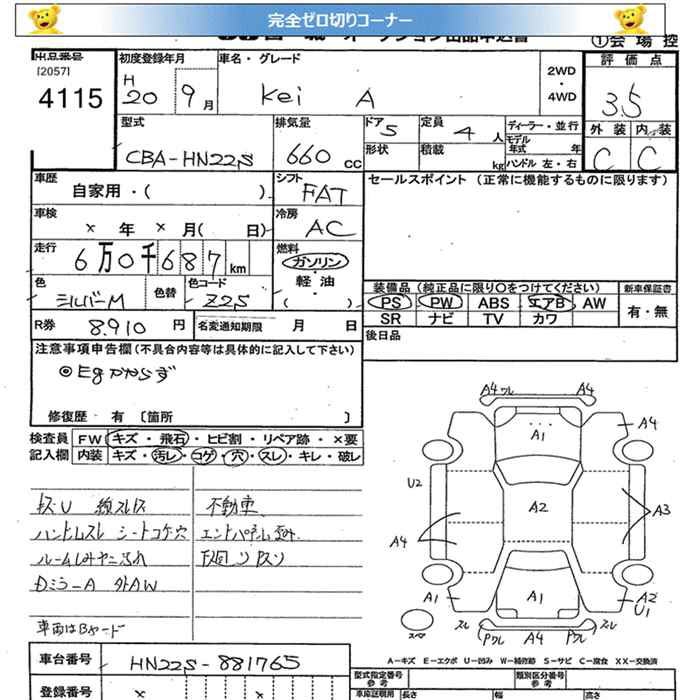 完全ゼロ切りコーナー
①会場控
出品番号
[2057]
4115
初度登録年月
H
20 9月
車名・グレード
Kei A
2WD
・
4WD
評価点
3.5
外装 内装
C C
型式
CBA-HN22S
排気量
660cc
ドア 5
形状
定員 4人
積載 kg
ディーラー・並行
モデル年式 年
ハンドル 左・右
車歴
自家用・( )
シフト
FAT
セールスポイント (正常に機能するものに限ります)
車検
× 年 × 月( 日)
冷房
AC
走行
6万0千687km
燃料
ガソリン
・
軽油
・
( )
色
シルバーM
色替
色コード
Z2S
装備品 (純正品に限り○をつけてください)
新車保証書
PS PW ABS エアB AW
有・無
SR ナビ TV カワ
R券 8.910 円
名変通知期限 月 日
後日品
注意事項申告欄(不具合内容等は具体的に記入して下さい)
◎Egかからず
修復歴 有 〔箇所 〕
検査員
記入欄
FW キズ・飛石・ヒビ割・リペア跡・×要
内装 キズ・汚レ・コゲ・穴・スレ・キレ・破レ
不動車
ハンドルスレ シートコゲ穴
ルームしみヤニ汚れ
Dミラ-A 外AW
車両はBヤード
A4 ワレ A4
A1
A4
U2
A2
A3
A4
A1
A1
A2
U1
スレ
スレ
Pワレ A4 Pワレ
A-キズ E-エクボ U-凹み W-補修跡 S-サビ C-腐食 XX-交換済
車台番号
HN22S-881765
登録番号
× ×
型式指定番号
参考
類別区分番号
参考
車庫証明用
長さ
幅
高さ